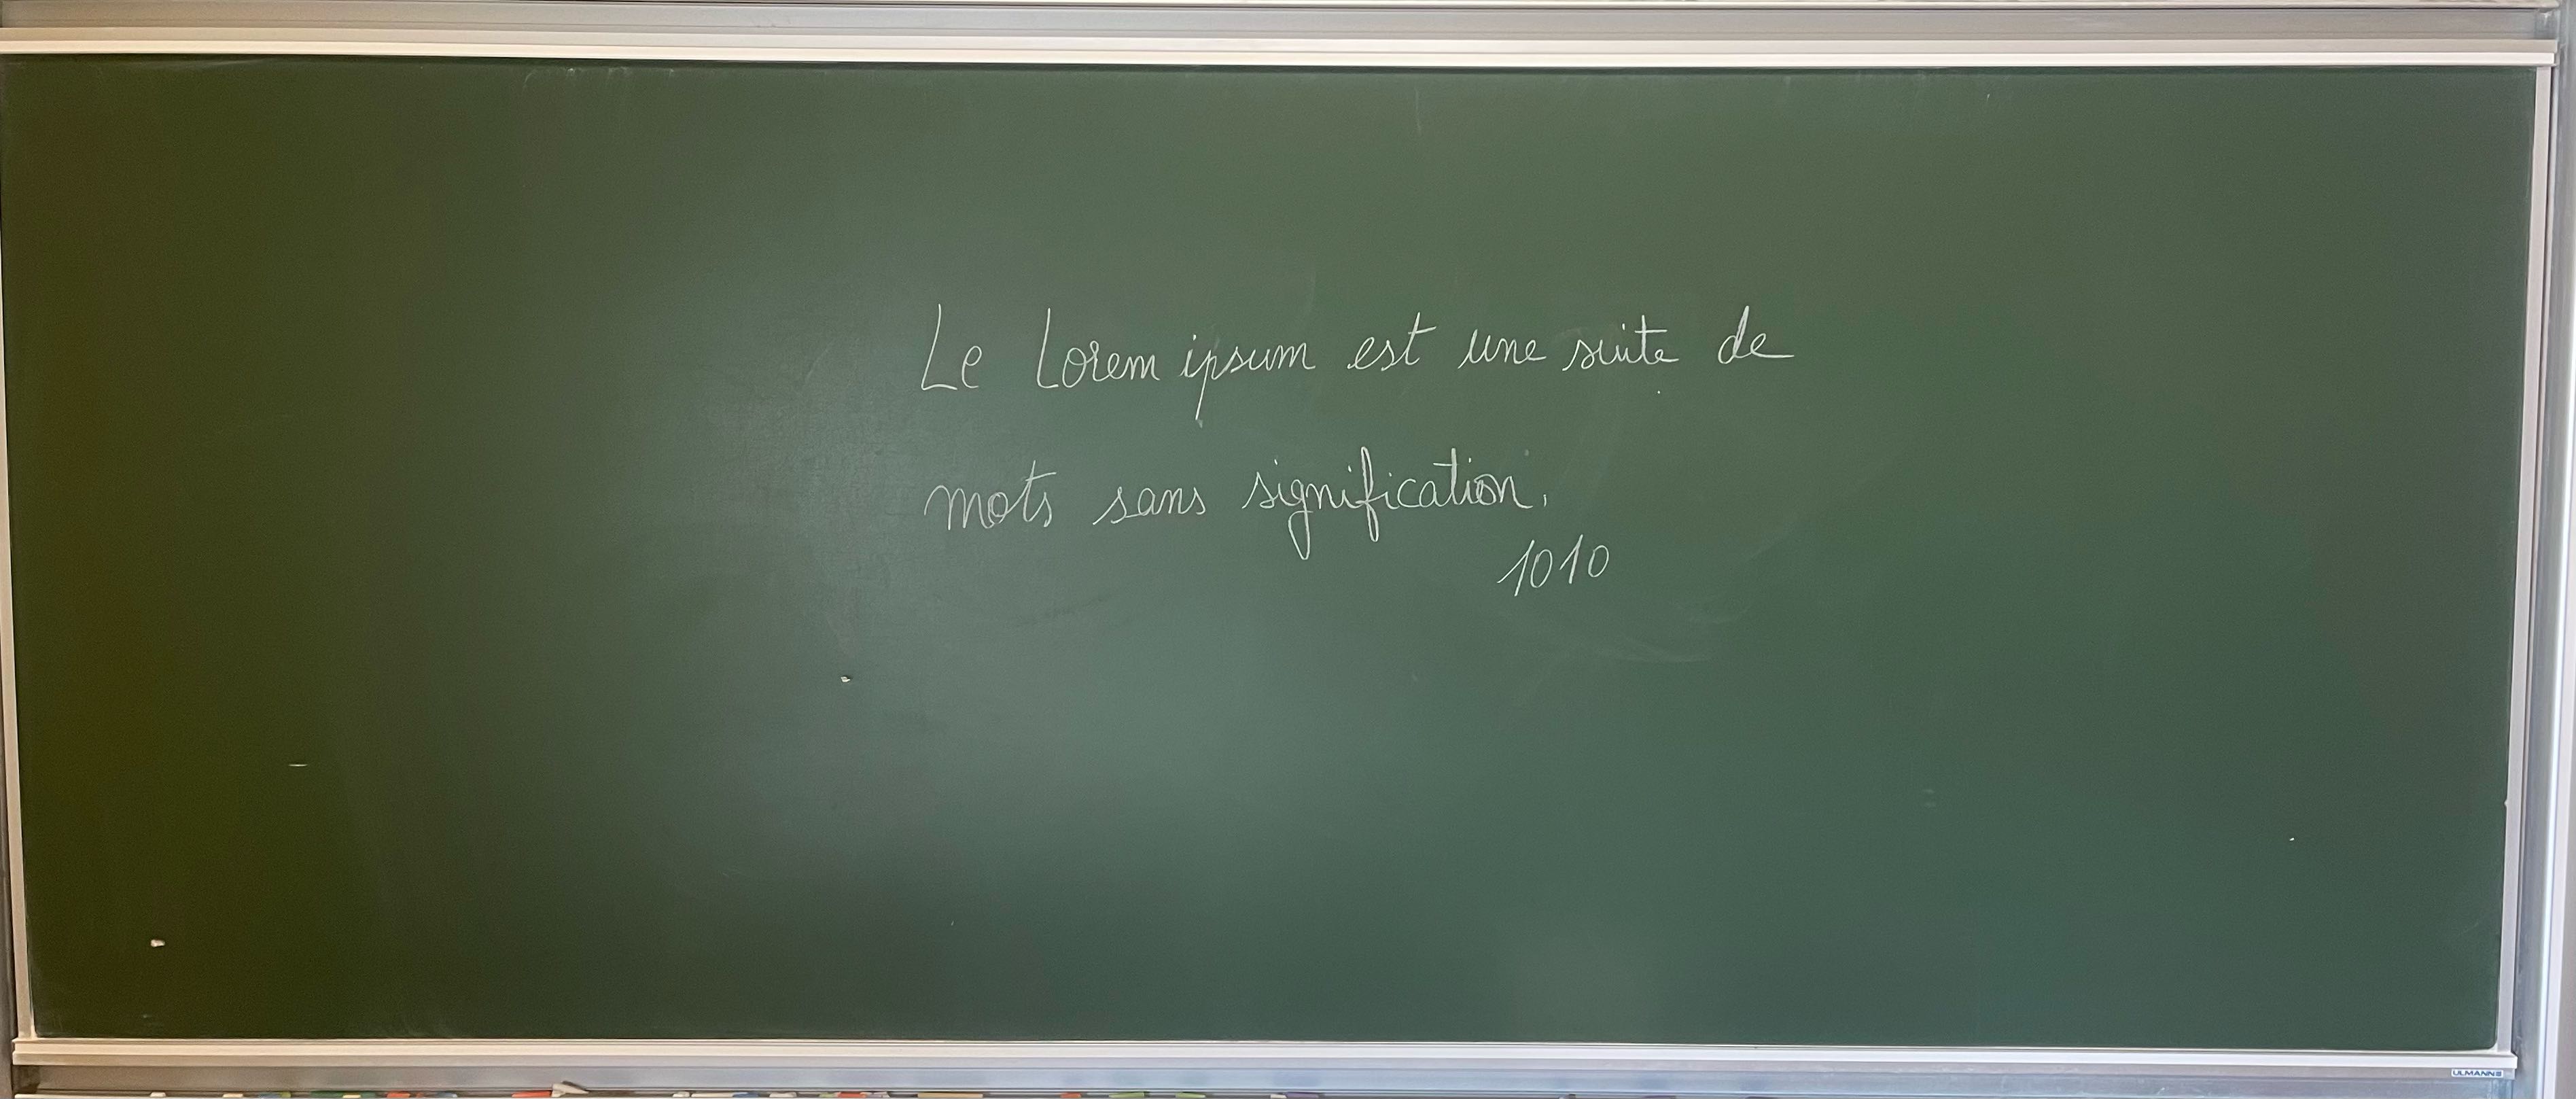 Le Lorem ipsum est une suite de
mots sans signification.
1010
ULMANN